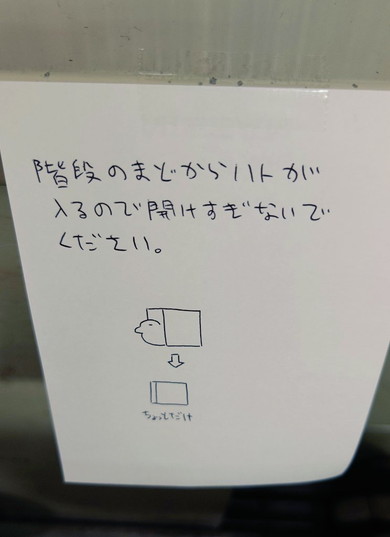 階段のまどからハトが
入るので開けすぎないで
ください。
ちょっとだけ